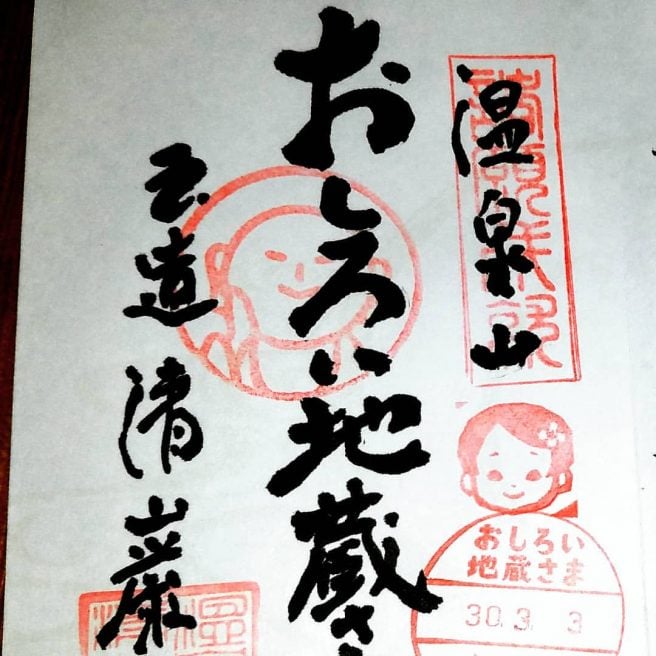 温泉山
おしろい地蔵さ
玉造 清巌
おしろい
地蔵さま
30.3.3